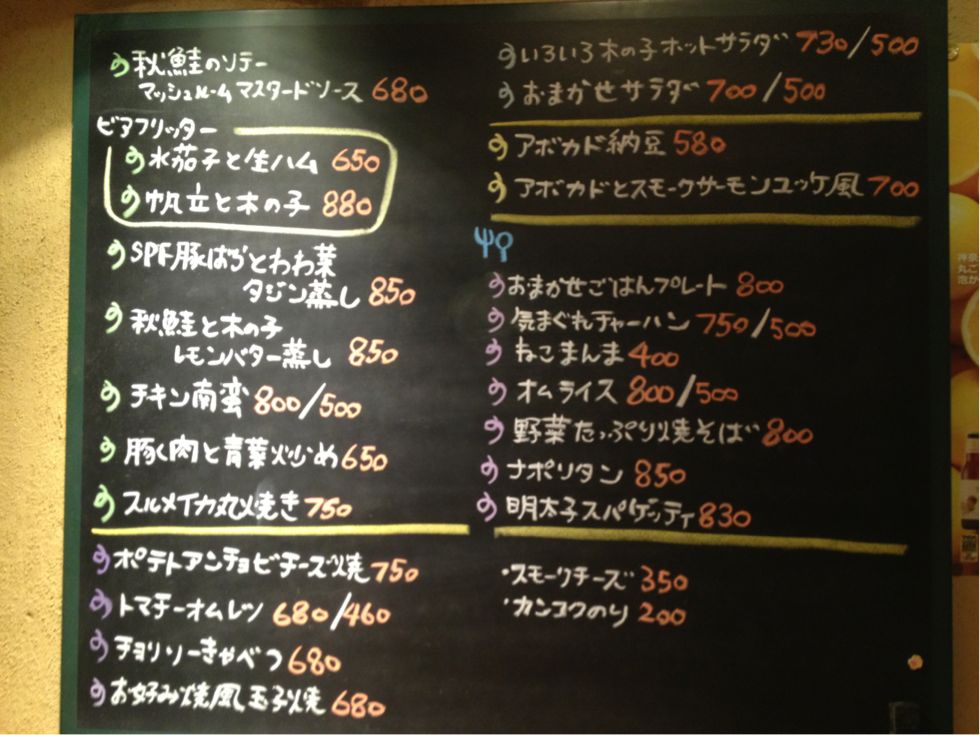 秋鮭のソテー
マッシュルームマスタードソース 680
ビアフリッター
水茄子と生ハム 650
帆立と木の子 880
SPF豚ばらとわわ菜
タジン蒸し 850
秋鮭と木の子
レモンバター蒸し 850
チキン南蛮 800/500
豚く肉と青菜炒め 650
スルメイカ丸焼き 750
ポテトアンチョビチーズ焼 750
トマチーオムレツ 680/460
チョリソーきゃべつ 680
お好み焼風玉子焼 680
いろいろ木の子ホットサラダ 730/500
おまかせサラダ 700/500
アボカド納豆 580
アボカドとスモークサーモンユッケ風 700
おまかせごはんプレート 800
気まぐれチャーハン 750/500
ねこまんま 400
オムライス 800/500
野菜たっぷり焼そば 800
ナポリタン 850
明太子スパゲッティ 830
・スモークチーズ 350
・カンコクのり 200